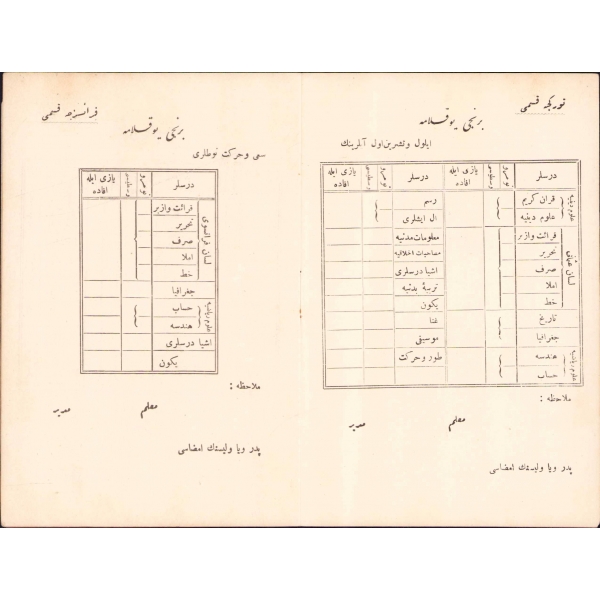 تورکجه قسمی
برنجی یوقلامه
ایلول و تشرین اول آیلرینك
درسلر
نومرو وسطیسی
یازی ایله افاده
درسلر
نومرو وسطیسی
یازی ایله افاده
علوم دینیه
قرآن کریم
علوم دینیه
لسان عثمانی
قرائت و ازبر
تحریر
صرف
املا
خط
تاریخ
جغرافیا
علوم ریاضیه
هندسه
حساب
رسم
ال ایشلری
معلومات مدنیه
مصاحبات اخلاقیه
اشیا درسلری
تربیهٔ بدنیه
یکون
غنا
موسیقی
طور و حرکت
ملاحظه :
معلم
مدیر
پدر ویا ولیسنك امضاسی
فرانسزجه قسمی
برنجی یوقلامه
سعی و حرکت نوطلری
درسلر
نومرو وسطیسی
یازی ایله افاده
لسان فرانسوی
قرائت و ازبر
تحریر
صرف
املا
خط
جغرافیا
علوم ریاضیه
حساب
هندسه
اشیا درسلری
یکون
ملاحظه :
معلم
مدیر
پدر ویا ولیسنك امضاسی